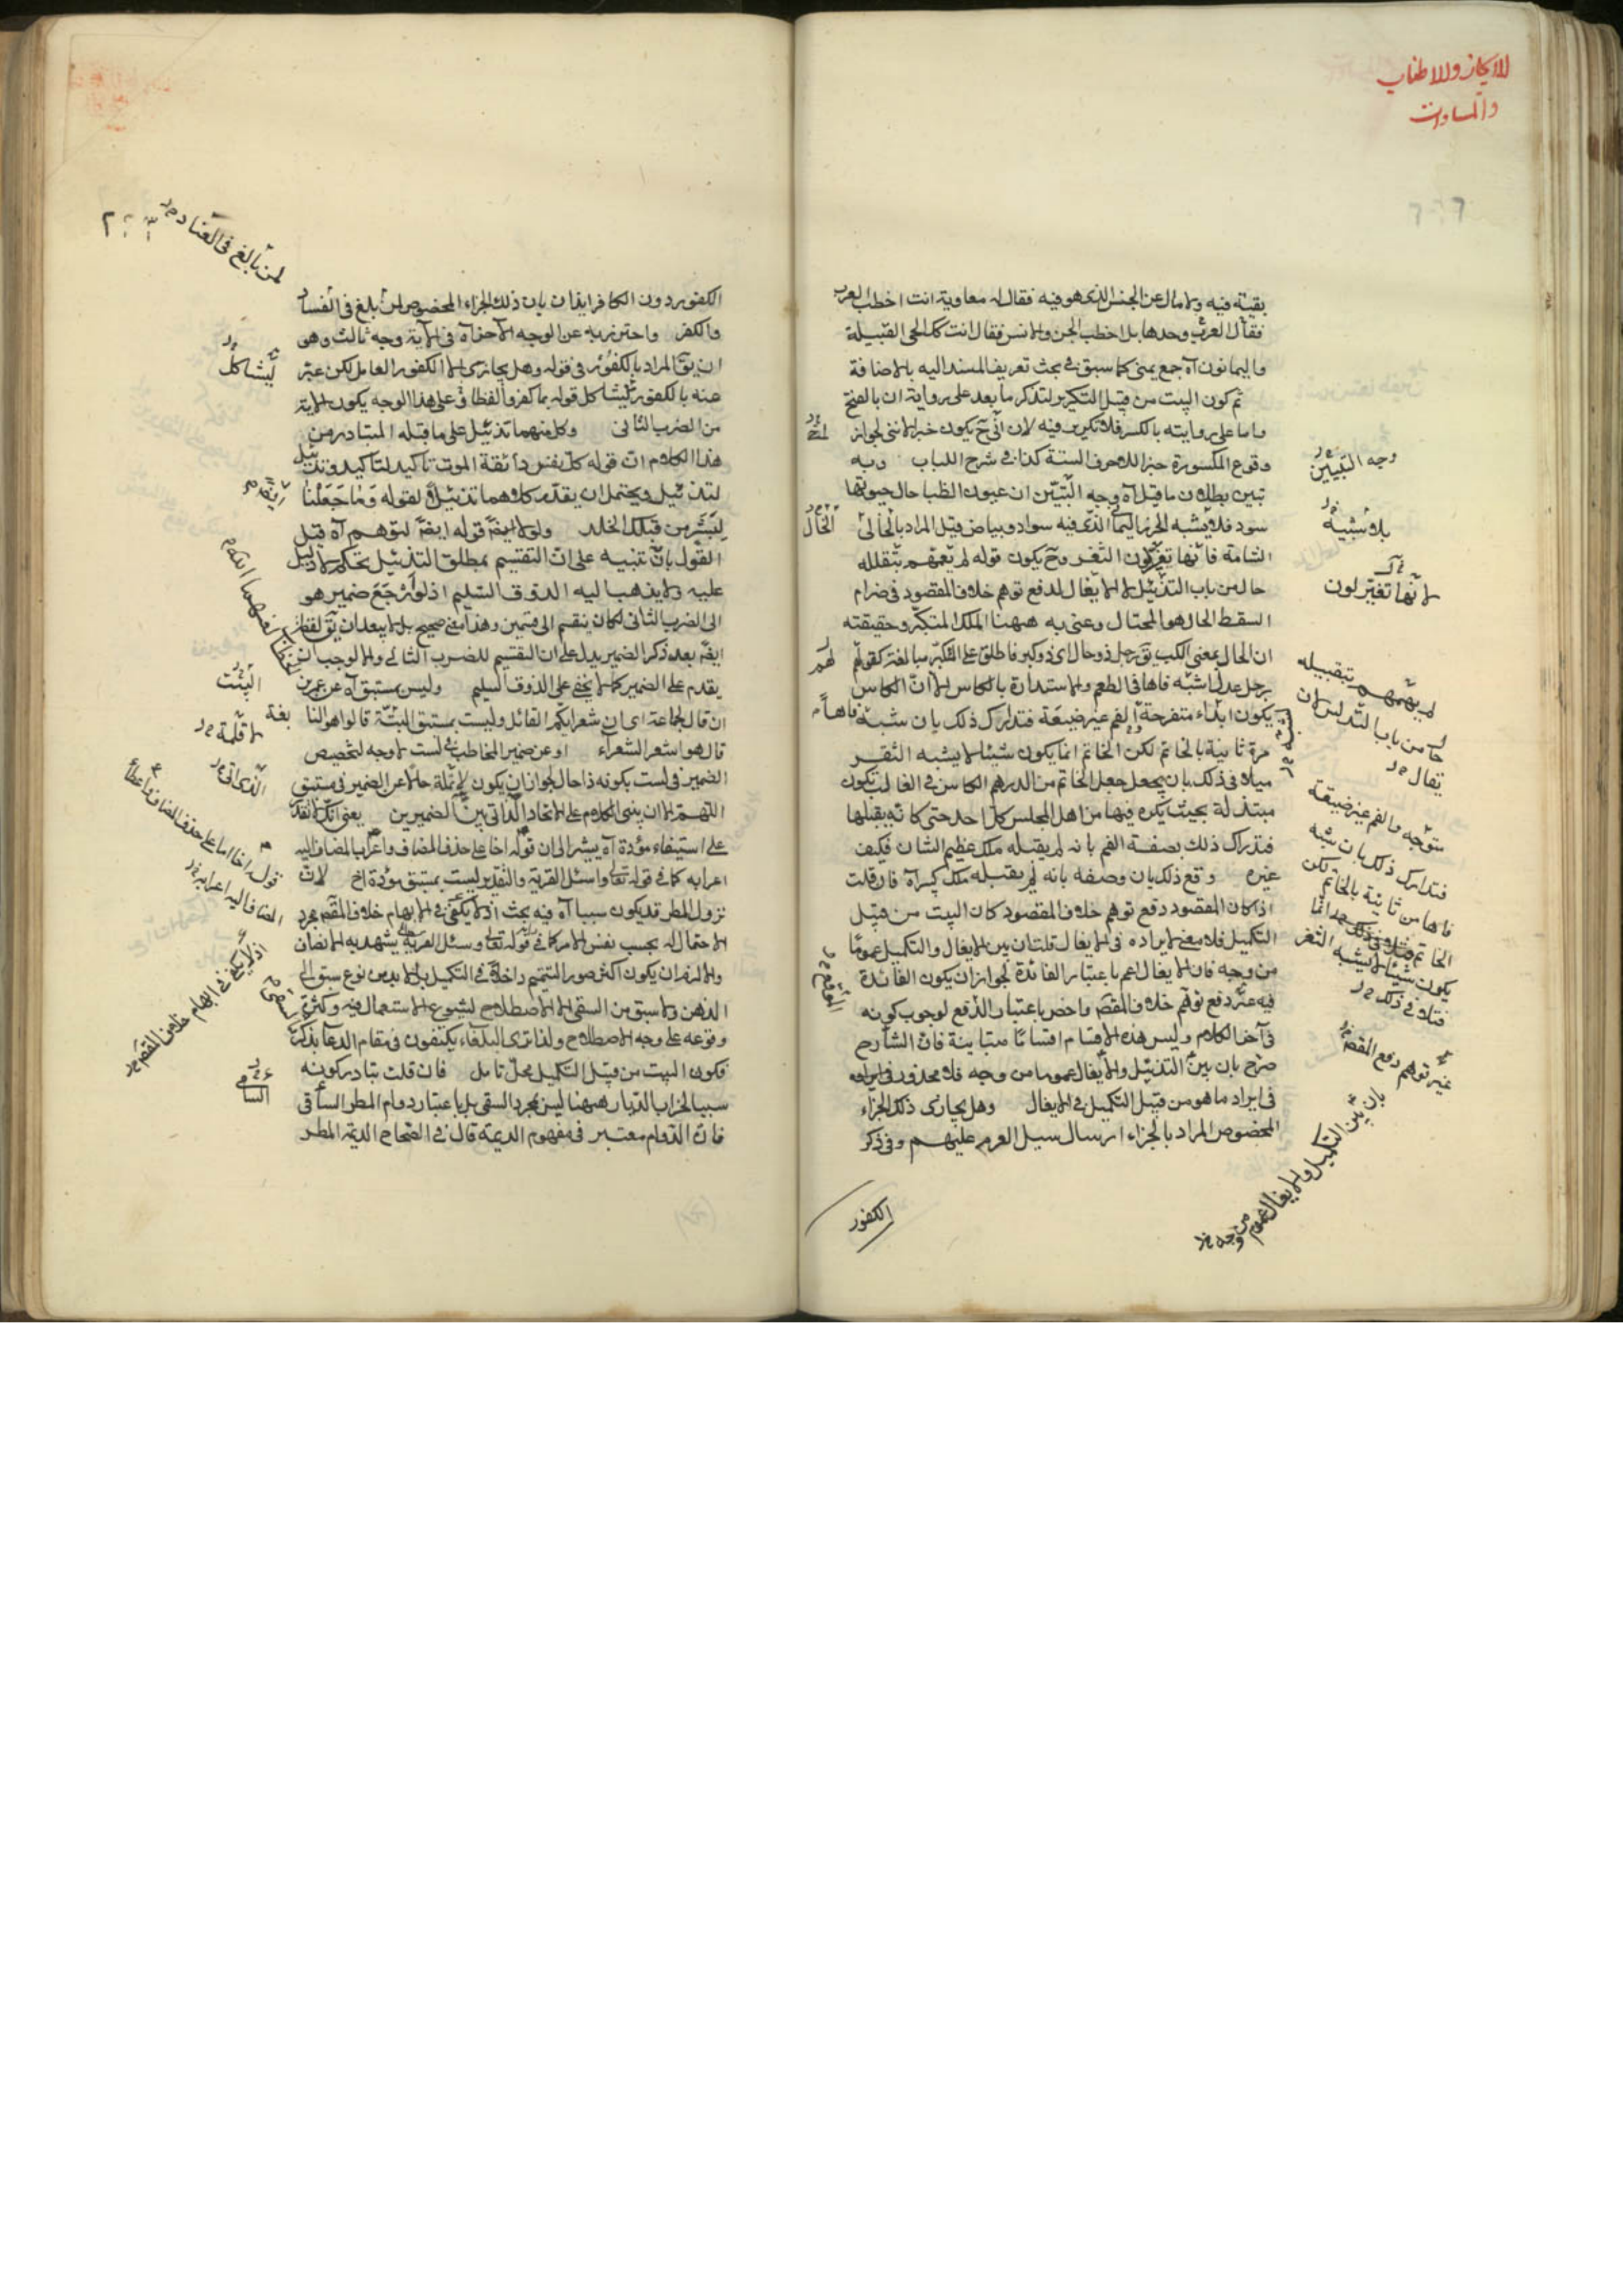 الايجاز والاطناب
والمساوات
بقيته فيه ولامال عن الجنس الذى هو فيه فقال له معاوية انت اخطب العرب
فقال العرب وحدها بل اخطب الجن والانس فقال انت كما الحى القبيلة
واليمانون آه جمع يمنى كما سبق فى بحث تعريف المسند اليه بالاضافة
ثم كون البيت من قبيل التكرير لتذكر ما بعد على رواية ان بالفتح
واما على روايته بالكسر فلا تكرير فيه لان انّى ح يكون خبر لاننى لجواز
وقوع المكسورة خبر الاحرف الستة كذا فى شرح اللباب وبه
تبين بطلان ما قيل آه وجه التبيّن ان عيون الظبا حال حيوتها
سود فلا يشبه الجزع اليمانى الذى فيه سواد وبياض قيل المراد بالخال
الشامة فانها تغيّر لون الثغر وح يكون قوله لم يهمهم بتقبيله
حال من باب التذييل لا الايغال لدفع توهم خلاف المقصود فى ضرام
السقط الخال هو المختال وعنى به ههنا الملك المتكبر وحقيقته
ان الخال بمعنى الكبر يق رجل ذو خال اى ذو كبر فاطلق على المتكبر مبالغة كقولهم
رجل عدل شبه فاها فى الطعم والاستدارة بالكاس الا ان الكاس
يكون ابداء متفرجة والفم غير ضيقة فتدارك ذلك بان شبه فاها
مرة ثانية بالخاتم لكن الخاتم انما يكون شيئا لا يشبه الثغر
ميلاد فى ذلك بان يجعل جعل الخاتم من الدر هم الكاس فى الغالب تكون
مبتذلة بحيث يكره فيها من اهل المجلس كل احد حتى كانه يقبلها
فتدارك ذلك بصفة الفم بانه لم يقبله ملك عظيم الشان فكيف
غيره وقع ذلك بان وصفه بانه لم يقبله ملك كبير آه فان قلت
اذا كان المقصود دفع توهم خلاف المقصود كان البيت من قبيل
التكميل فلا معنى لايراده فى الايغال قلت ان بين الايغال والتكميل عموما
من وجه فان الايغال اعم باعتبار الفائدة لجواز ان يكون الفائدة
فيه غير دفع توهم خلاف المقصود واخص باعتبار الدفع لوجوب كونه
فى آخر الكلام وليس هذه الاقسام اقساما متباينة فان الشارح
صرح بان بين التذييل والايغال عموما من وجه فلا محذور فى ايراده
فى ايراد ما هو من قبيل التكميل فى الايغال وهل يجازى ذلك الجزاء
المخصوص المراد بالجزاء ارسال سيل العرم عليهم وفى ذكر
الكفور
وجه التبيين
بلا شبيه
لانها تغير لون
لم يهمهم بتقبيله
حال من باب التذييل لان
يقال
متوجه والفم غير ضيقة
فتدارك ذلك بان شبه
فاها من ثانية بالخاتم لكن
يكون شيئا لا يشبه الثغر
غير توهم دفع المقصد
بان بين التكميل والايغال عموم من وجه
الكفور دون الكافر ايذان بان ذلك الجزاء المخصوص لمن بلغ فى الفساد
والكفر واحترز به عن الوجه الآخر آه فى الآية وجه ثالث وهو
ان يق المراد بالكفور فى قوله وهل يجازى الا الكفور العامل لكن عبّر
عنه بالكفور ليشاكل قوله بما كفروا لفظا فعلى هذا الوجه يكون الآية
من الضرب الثانى وكل منهما تذييل على ما قبله المتبادر من
هذا الكلام ان قوله كل نفس ذائقة الموت تاكيد لتاكيد وتذييل
لتذييل ويحتمل ان يقدر كلاهما تذييلا لقوله وما جعلنا
لبشر من قبلك الخلد ولولا ايض قوله ايض لتوهم آه قيل
القول بان تنبيه على ان التقسيم بمطلق التذييل تحكم لا دليل
عليه ولا يذهب اليه الذوق السليم اذ لو رجع ضمير هو
الى الضرب الثانى لكان ينقسم الى قسمين وهذا معنى صحيح بل لا يبعد ان يق لفظ
ايض بعد ذكر الضمير يدل على ان التقسيم للضرب الثانى والا لوجب ان
يقدم على الضمير كما لا يخفى على الذوق السليم وليس بمستبق آه عن عمر بن
ان قال لجماعة اى ان شعرائكم القائل وليست بمستبق البتة قالوا هو النابغة
قال هو اشعر الشعراء او عن ضمير المخاطب فى لست لا وجه لتخصيص
الضمير فى لست بكونه ذا حال لجواز ان يكون لا تلمّه حالا عن الضمير فى مستبق
اللهم الا ان يبنى الكلام على الاتحاد الذاتى بين الضميرين يعنى انك لا تقدر
على استبقاء مودة آه يشير الى ان قوله اخا على حذف المضاف واعراب المضاف اليه
اعرابه كما فى قوله تعالى واسئل القرية والتقدير ليست بمستبق مودة اخ لان
نزول المطر قد يكون سببا آه فيه بحث اذ لا يكفى فى الايهام خلاف المقصد مجرد
الاحتمال له بحسب نفس الامر كما فى قوله تعالى وسئل القرية يشهد به الانصاف
والا لزم ان يكون اكثر صور التتميم داخلا فى التكميل بل لا بد من نوع سبق الى
الذهن ولا سبق من السقى الا الاصطلاح لشيوع الاستعمال فيه وكثرة
وقوعه على وجه الاصطلاح ولذا ترى البلغاء يكتفون فى مقام الدعا بذكره
فكون البيت من قبيل التكميل محل تامل فان قلت تبادر كونه
سببا لخراب الديار ههنا ليس لمجرد السقى بل باعتبار دوام المطر الساقى
فان الدوام معتبر فى مفهوم الديمة قال فى الصحاح الديمة المطر
لمن بالغ فى العناد
ليشاكل
البتت
الذى اتى
قوله اخا اما على حذف المضاف واعطاء
المضاف اليه اعرابه
اذ لا يكفى فى ايهام خلاف المقصد